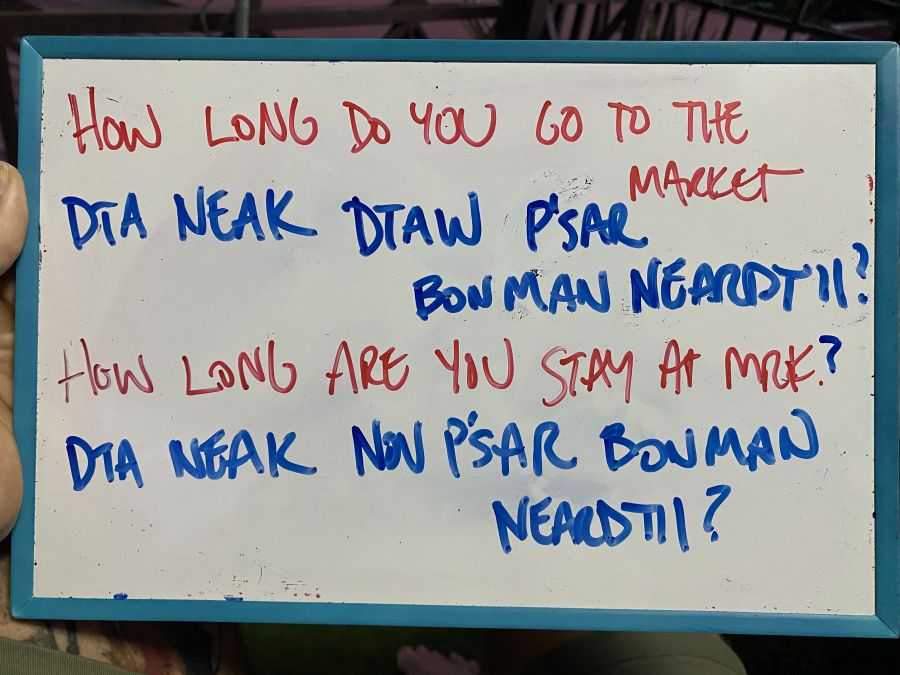 HOW LONG DO YOU GO TO THE
MARKET
DTA NEAK DTAW P'SAR
BONMAN NEARDTII?
HOW LONG ARE YOU STAY AT MRK.?
DTA NEAK NOV P'SAR BONMAN
NEARDTII?